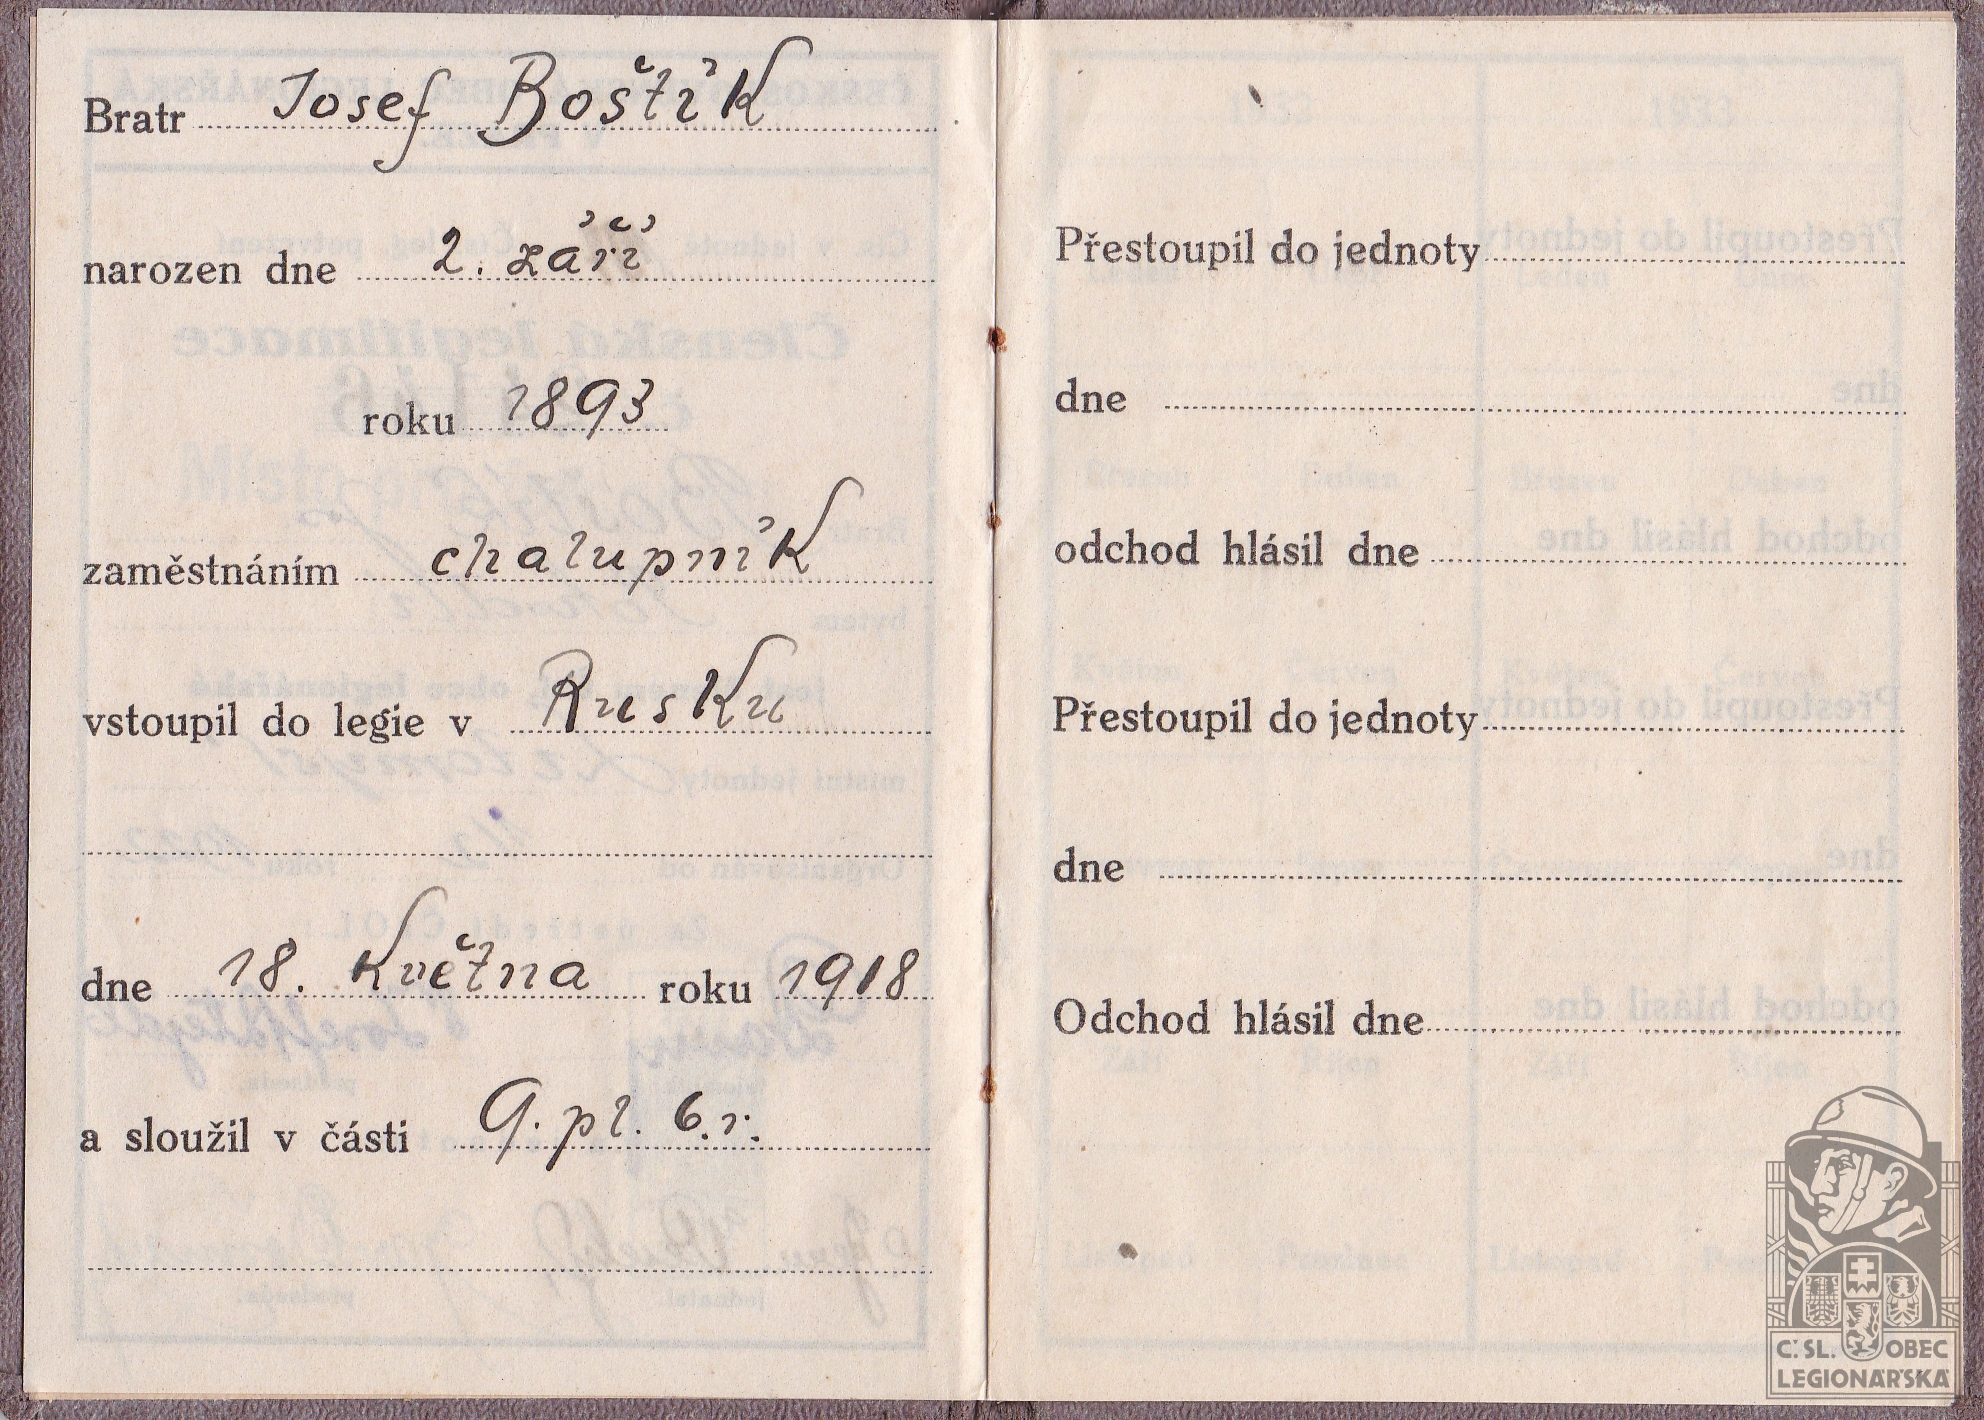 Bratr Josef Boštík
narozen dne 2. září
roku 1893
zaměstnáním chalupník
vstoupil do legie v Rusku
dne 18. května roku 1918
a sloužil v části 9. pl. 6. r.
Přestoupil do jednoty
dne
odchod hlásil dne
Přestoupil do jednoty
dne
Odchod hlásil dne
Č.SL. OBEC
LEGIONÁŘSKÁ